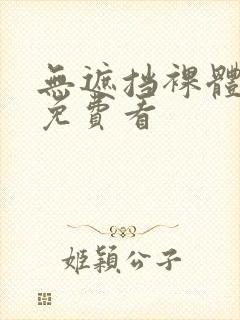 無遮挡裸體
免費看
姬穎公子